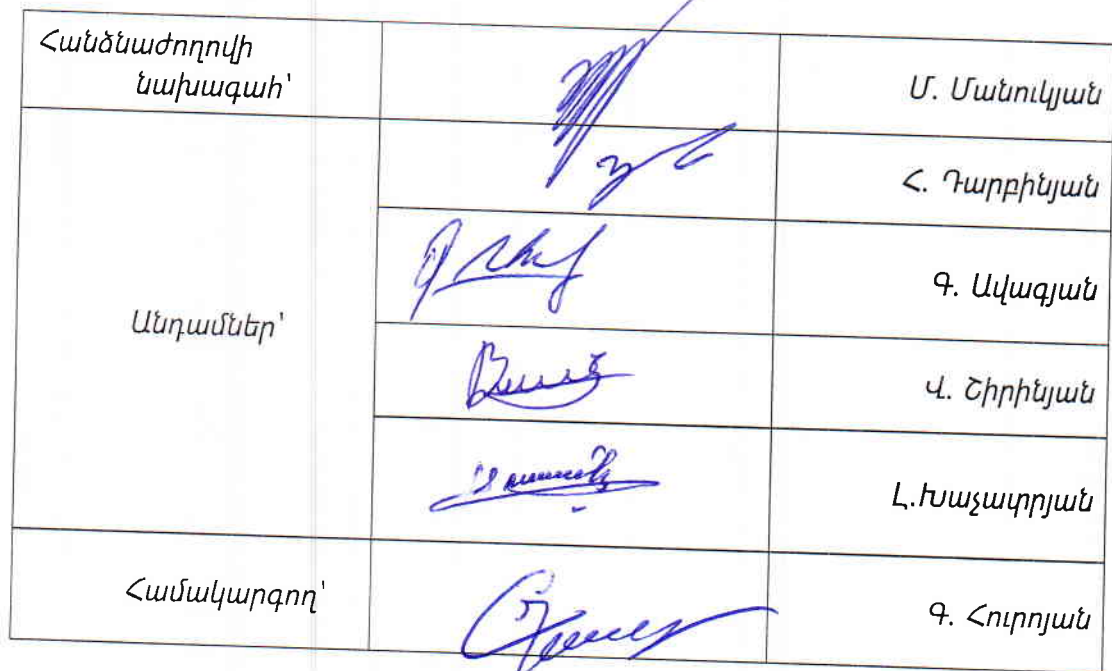 Հանձնաժողովի
նախագահ՝
Մ. Մանուկյան
Անդամներ՝
Հ. Դարբինյան
Գ. Ավագյան
Վ. Շիրինյան
Լ.Խաչատրյան
Համակարգող՝
Գ. Հուրոյան